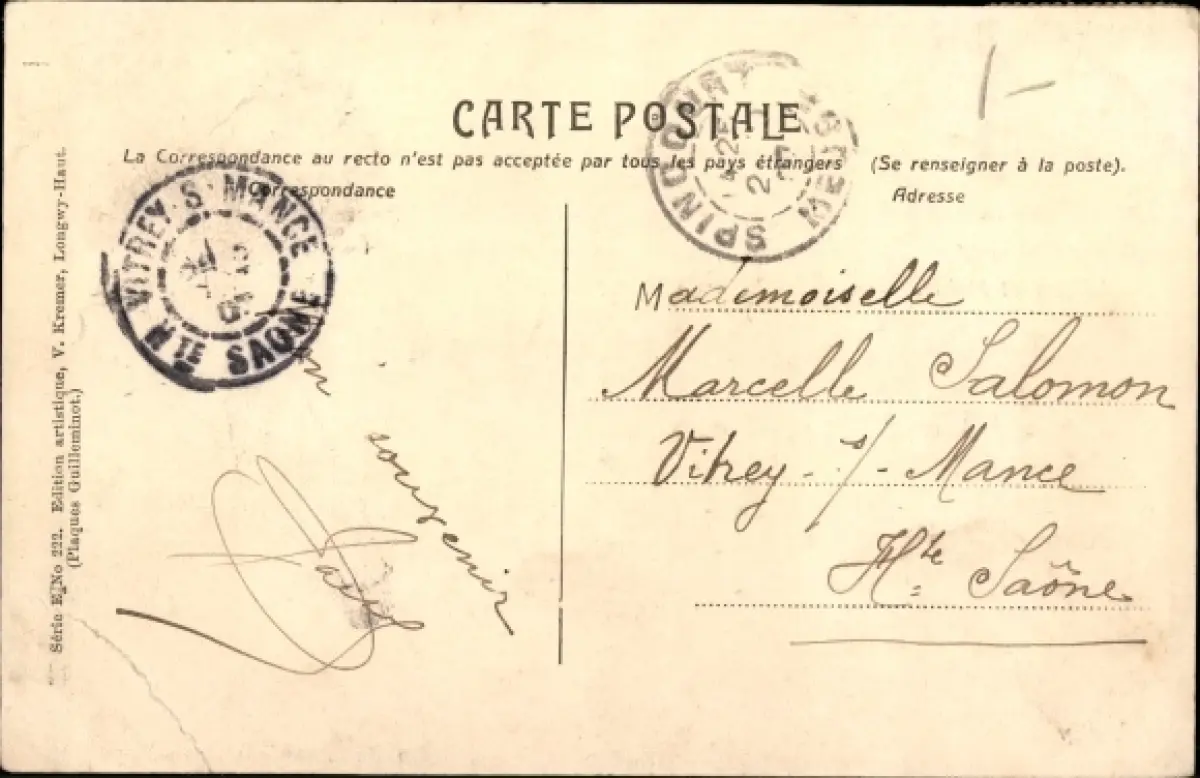 CARTE POSTALE
La Correspondance au recto n'est pas acceptée par tous les pays étrangers (Se renseigner à la poste).
Correspondance
Adresse
VITREY-S-MANCE
Hᵀᴱ SAONE
SPINCOURT
MEUSE
Mademoiselle
Marcelle Salomon
Vitrey - s/ - Mance
Hte Saône
souvenir
Série E, No 222. Edition artistique, V. Kremer, Longwy-Haut.
(Plaques Guilleminot.)
1-